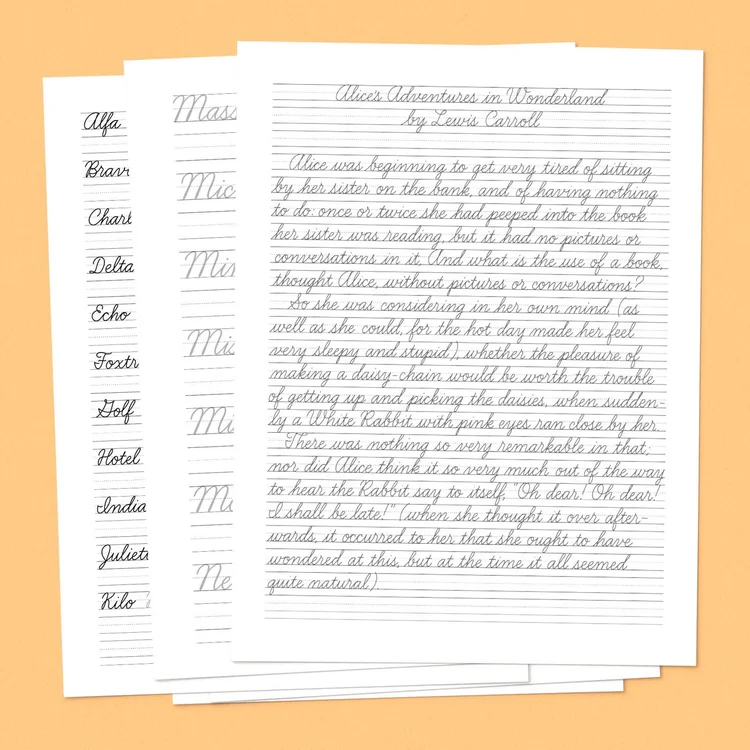 Alfa
Brav
Charl
Delta
Echo
Foxtr
Golf
Hotel
India
Juliet
Kilo
Mass
Mic
Min
Mi
Ne
Alice's Adventures in Wonderland
by Lewis Carroll
Alice was beginning to get very tired of sitting
by her sister on the bank, and of having nothing
to do: once or twice she had peeped into the book
her sister was reading, but it had no pictures or
conversations in it. And what is the use of a book,
thought Alice, without pictures or conversations?
So she was considering in her own mind (as
well as she could, for the hot day made her feel
very sleepy and stupid), whether the pleasure of
making a daisy-chain would be worth the trouble
of getting up and picking the daisies, when sudden-
ly a White Rabbit with pink eyes ran close by her.
There was nothing so very remarkable in that;
nor did Alice think it so very much out of the way
to hear the Rabbit say to itself, "Oh dear! Oh dear!
I shall be late!" (when she thought it over after-
wards, it occurred to her that she ought to have
wondered at this, but at the time it all seemed
quite natural).